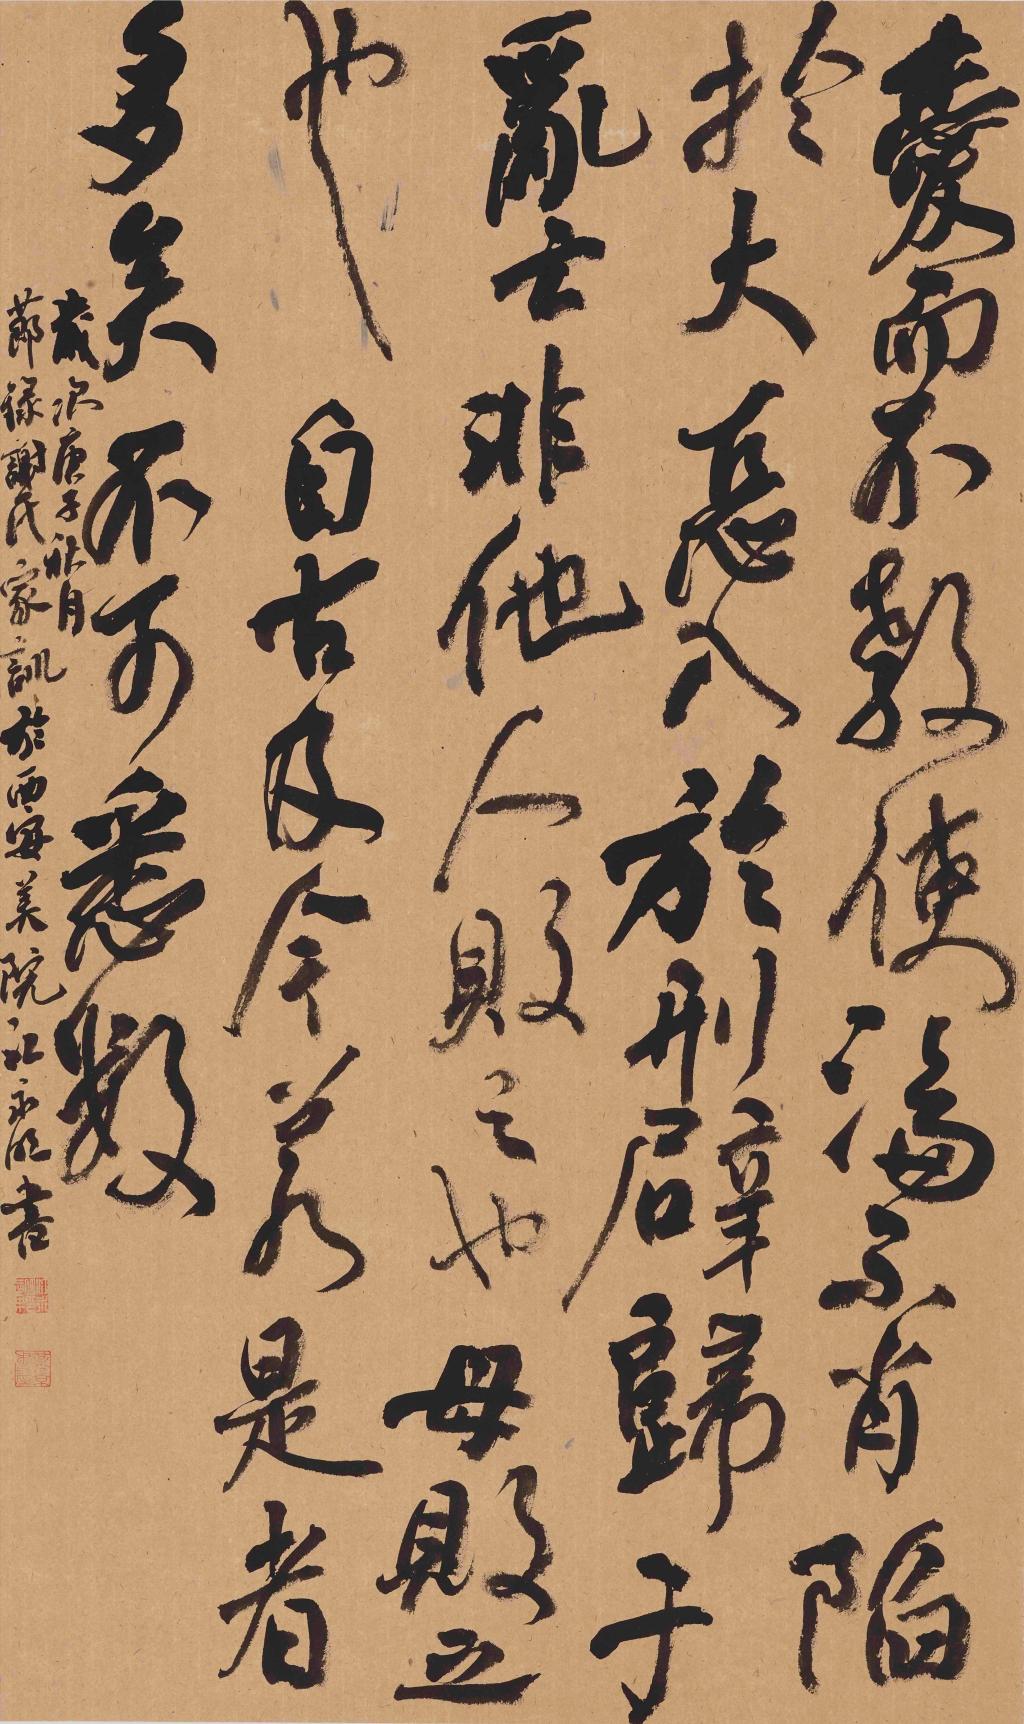 爱而不教使沦於不肖陷
於大恶入於刑辟歸于
亂亡非他人敗之也母敗之
也自古及今若是者
多矣不可悉數
歲次庚子秋月
節録謝氏家訓於西安美院江永明書